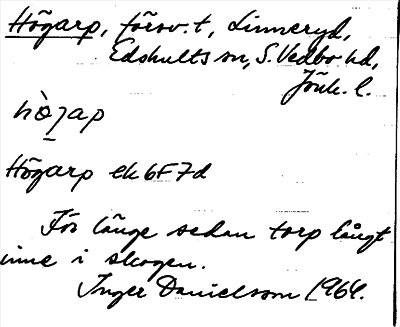 Högarp, försv. t, Linneryd,
Edshults sn, S. Vedbo hd,
Jönk. l.
hògap
Högarp ek 6F7d
För länge sedan torp långt
inne i skogen.
Inger Danielsson 1964.